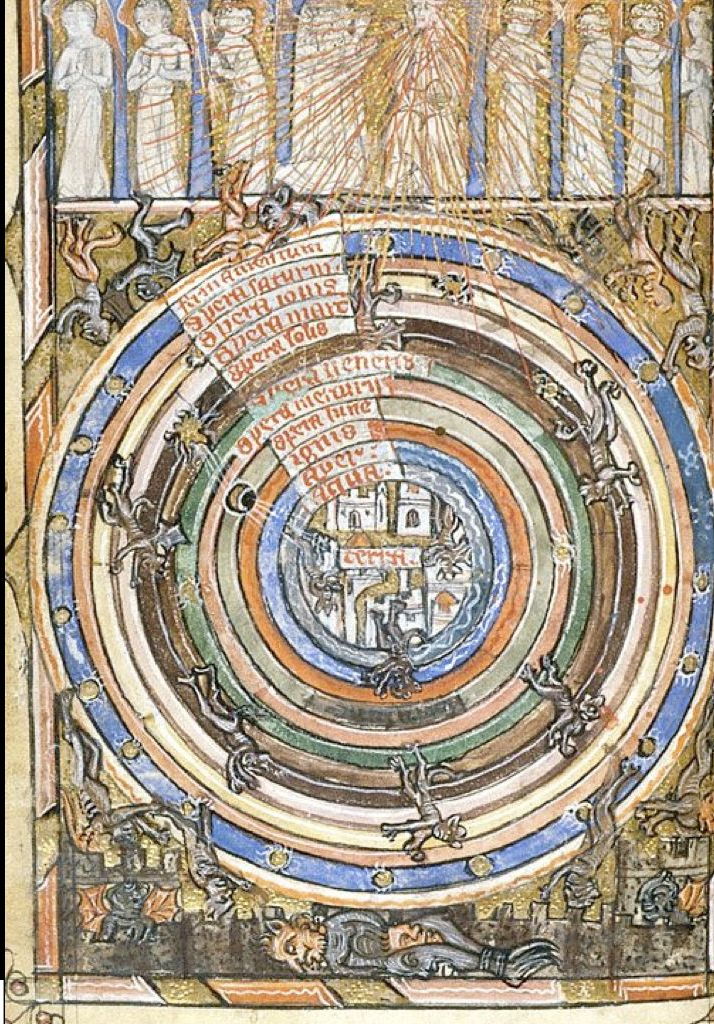 firmamentum
Spera saturni
Spera iouis
Spera
Spera solis
Spera ueneris
Spera mercurij
Spera lune
ignis
Aer.
Aqua.
terra.